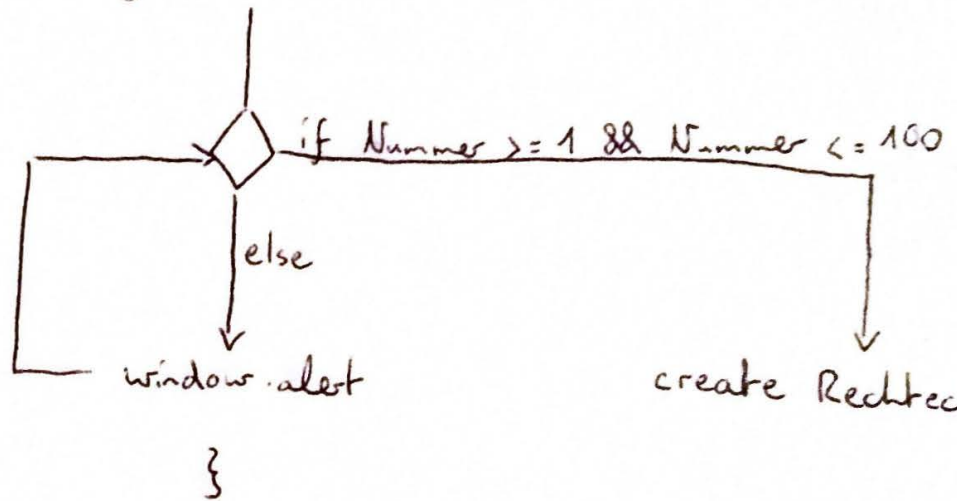 if Nummer >= 1 && Nummer <= 100
else
window.alert
create Rechtec
}